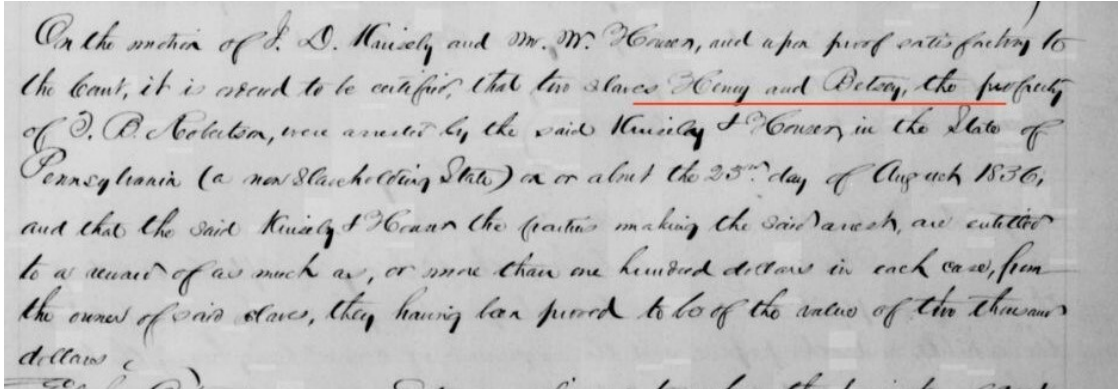 On the motion of J. D. Kniseley and Mr. W. Houser, and upon proof satisfactory to
the Court, it is ordered to be certified, that two slaves Henny and Betsey, the property
of J. B. Robertson, were arrested by the said Kniseley & Houser, in the State of
Pennsylvania (a non Slaveholding State) on or about the 25th day of August 1836,
and that the said Kniseley & Houser the parties making the said arrest, are entitled
to a reward of as much as, or more than one hundred dollars in each case, from
the owner of said slaves, they having been proved to be of the value of two thousand
dollars